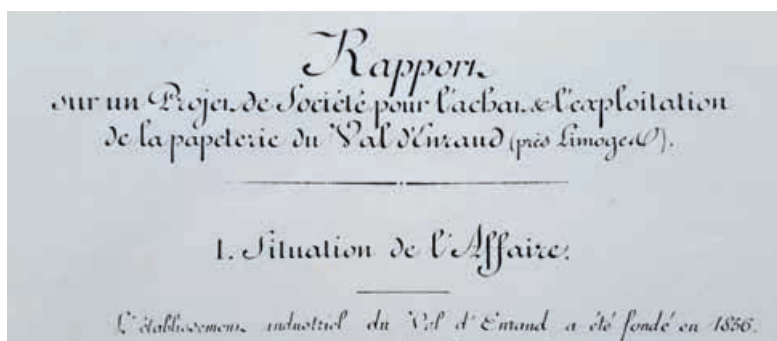 Rapport
sur un Projet de Société pour l'achat & l'exploitation
de la papeterie du Val d'Enraud (près Limoges).
1. Situation de l'Affaire.
L'établissement industriel du Val d'Enraud a été fondé en 1856.